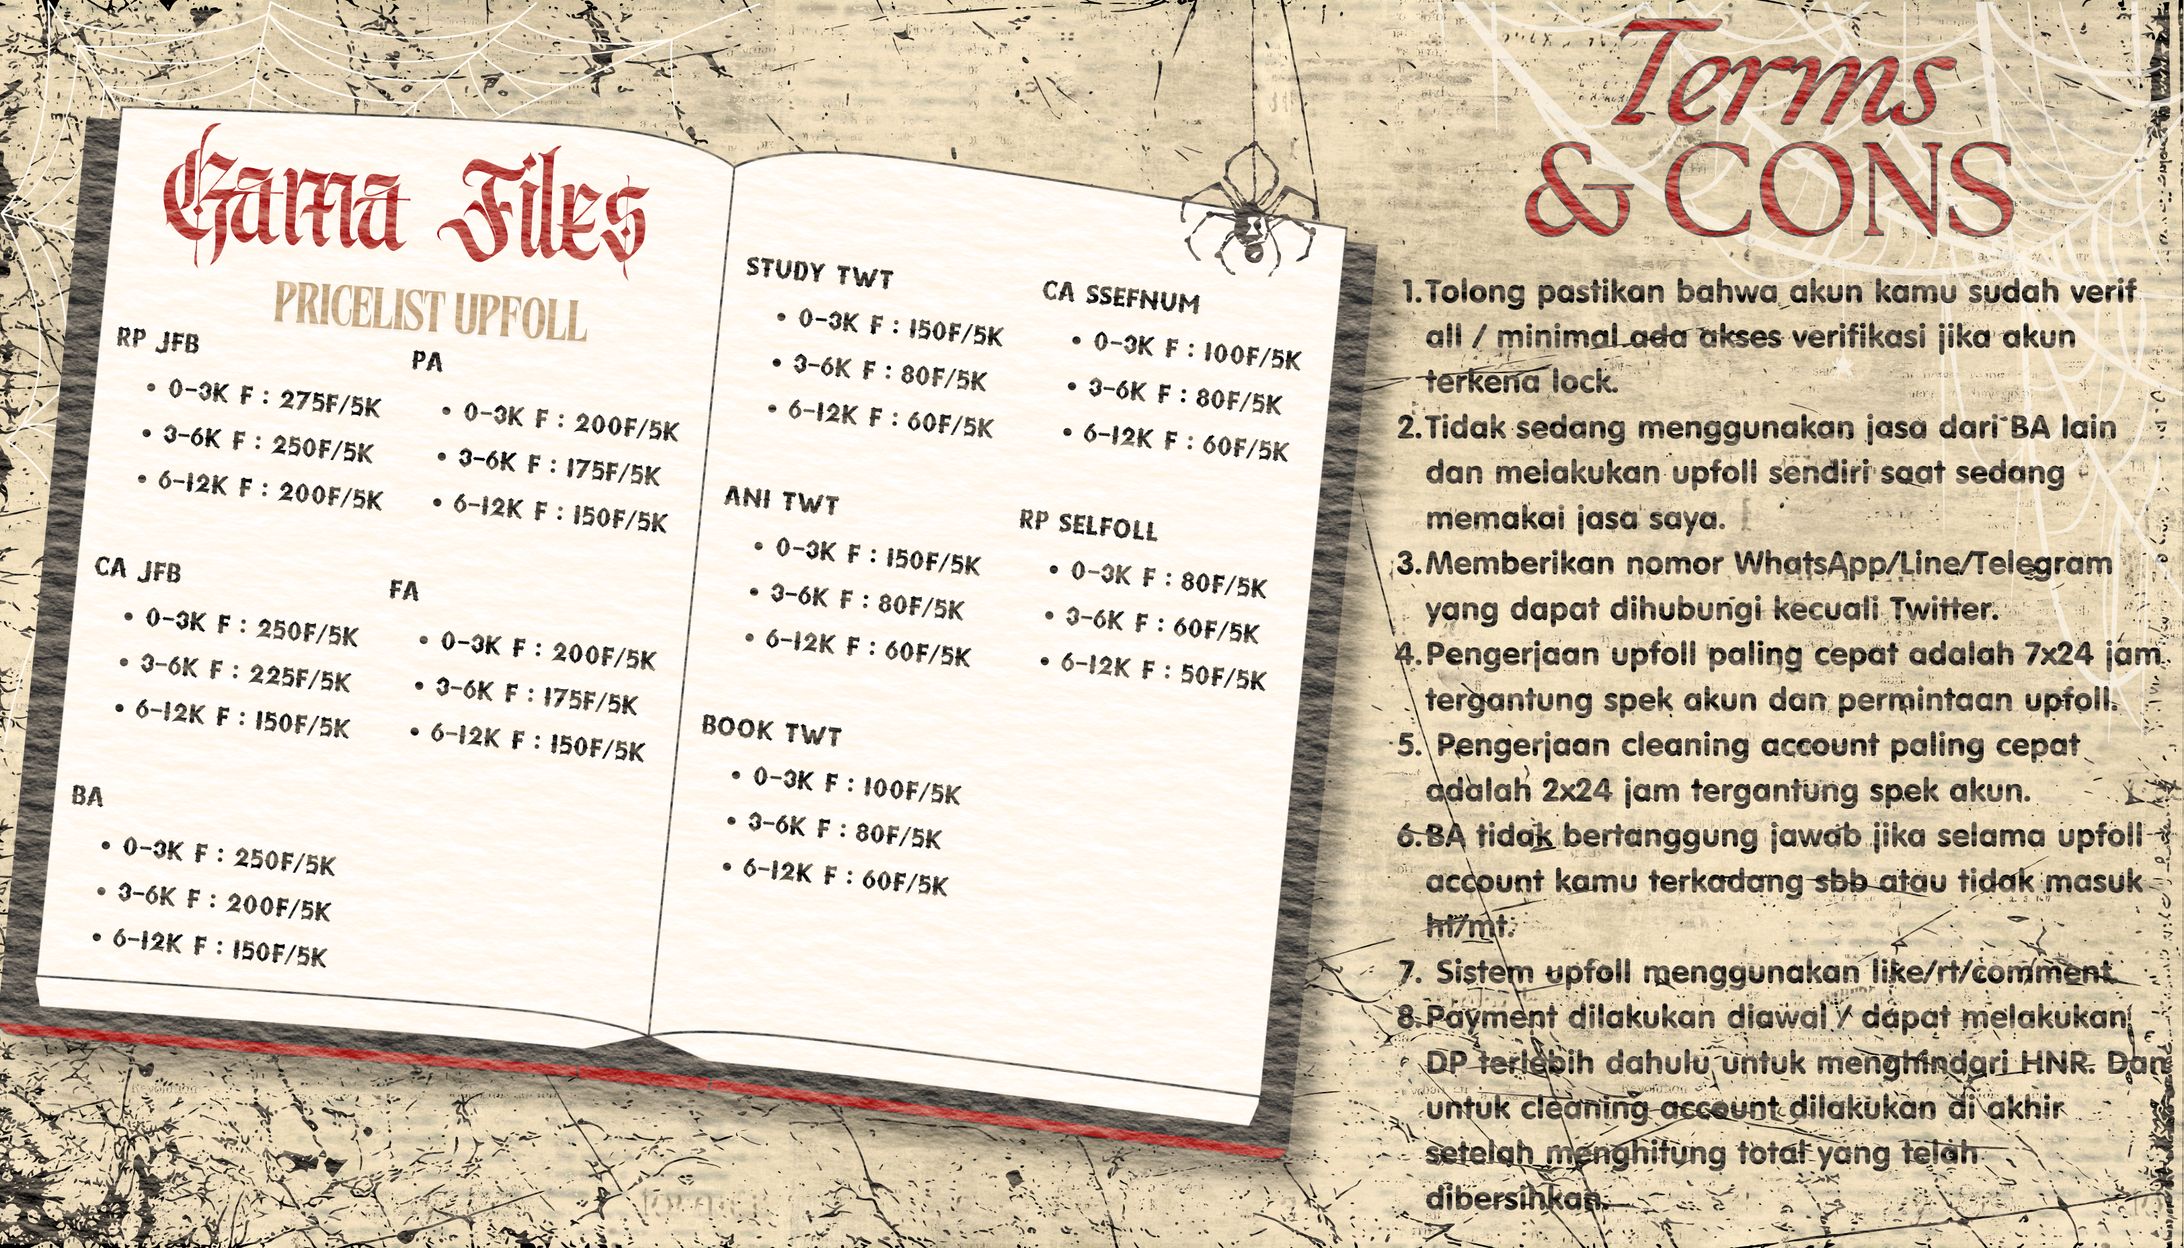 Gama Files
PRICELIST UPFOLL
RP JFB
• 0-3K F : 275F/5K
• 3-6K F : 250F/5K
• 6-12K F : 200F/5K
PA
• 0-3K F : 200F/5K
• 3-6K F : 175F/5K
• 6-12K F : 150F/5K
CA JFB
• 0-3K F : 250F/5K
• 3-6K F : 225F/5K
• 6-12K F : 150F/5K
FA
• 0-3K F : 200F/5K
• 3-6K F : 175F/5K
• 6-12K F : 150F/5K
BA
• 0-3K F : 250F/5K
• 3-6K F : 200F/5K
• 6-12K F : 150F/5K
STUDY TWT
• 0-3K F : 150F/5K
• 3-6K F : 80F/5K
• 6-12K F : 60F/5K
CA SSEFNUM
• 0-3K F : 100F/5K
• 3-6K F : 80F/5K
• 6-12K F : 60F/5K
ANI TWT
• 0-3K F : 150F/5K
• 3-6K F : 80F/5K
• 6-12K F : 60F/5K
RP SELFOLL
• 0-3K F : 80F/5K
• 3-6K F : 60F/5K
• 6-12K F : 50F/5K
BOOK TWT
• 0-3K F : 100F/5K
• 3-6K F : 80F/5K
• 6-12K F : 60F/5K
Terms
& CONS
1. Tolong pastikan bahwa akun kamu sudah verif
all / minimal ada akses verifikasi jika akun
terkena lock.
2. Tidak sedang menggunakan jasa dari BA lain
dan melakukan upfoll sendiri saat sedang
memakai jasa saya.
3. Memberikan nomor WhatsApp/Line/Telegram
yang dapat dihubungi kecuali Twitter.
4. Pengerjaan upfoll paling cepat adalah 7x24 jam
tergantung spek akun dan permintaan upfoll.
5. Pengerjaan cleaning account paling cepat
adalah 2x24 jam tergantung spek akun.
6. BA tidak bertanggung jawab jika selama upfoll
account kamu terkadang sbb atau tidak masuk
hf/mt.
7. Sistem upfoll menggunakan like/rt/comment
8. Payment dilakukan diawal / dapat melakukan
DP terlebih dahulu untuk menghindari HNR. Dan
untuk cleaning account dilakukan di akhir
setelah menghitung total yang telah
dibersihkan.